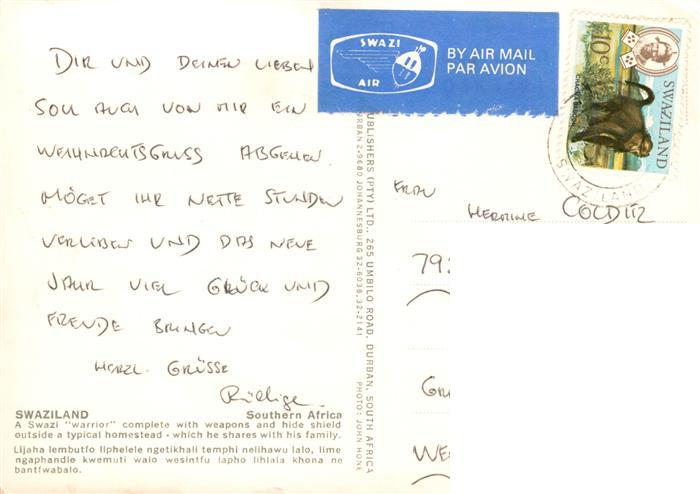 DIR UND DEINEN LIEBEN
SOLL AUCH VON MIR EIN
WEIHNACHTSGRUSS ABGEHEN.
MÖGET IHR NETTE STUNDEN
VERLEBEN UND DAS NEUE
JAHR VIEL GLÜCK UND
FREUDE BRINGEN
HERZL. GRÜSSE
Rüdiger
SWAZILAND Southern Africa
A Swazi "warrior" complete with weapons and hide shield
outside a typical homestead - which he shares with his family.
Lijaha lembutfo liphelele ngetikhali temphi nelihawu lalo, lime
ngaphandle kwemuti walo wesintfu lapho lihlala khona ne
bantfwabalo.
UBLISHERS (PTY) LTD., 265 UMBILO ROAD, DURBAN, SOUTH AFRICA
URBAN 2-9680 JOHANNESBURG 32-6038, 32-2141
PHOTO: JOHN HONE
SWAZI
AIR
BY AIR MAIL
PAR AVION
10c
SWAZILAND
SWAZILAND
FRAU
HERMINE COLDITZ
792
GR
WE